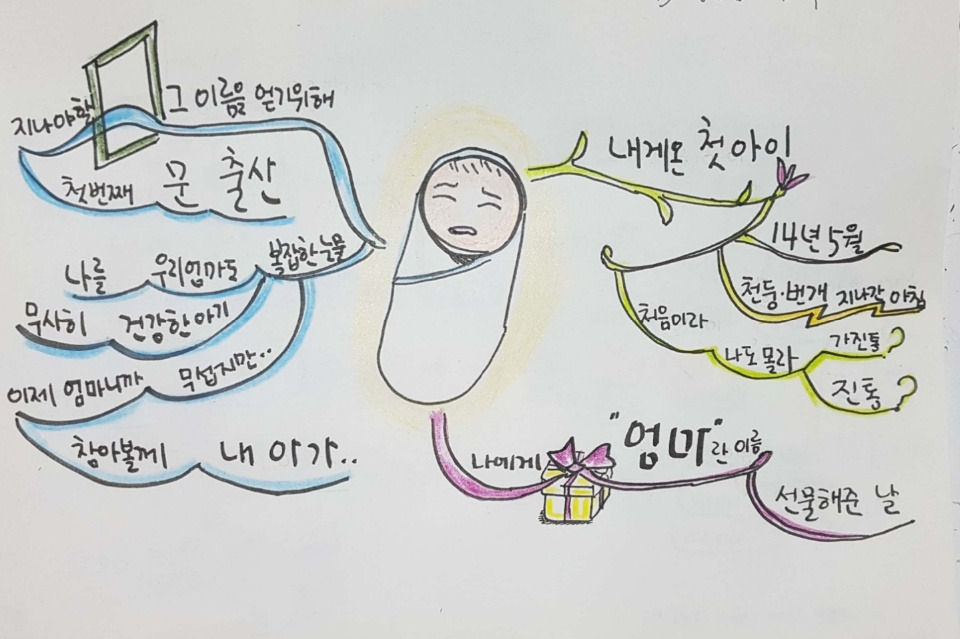 내게온 첫아이
14년 5월
천둥·번개 지나간 아침
처음이라
나도 몰라
가진통?
진통?
나에게
"엄마"란 이름
선물해준 날
그 이름을 얻기위해
지나야할
첫번째 문 출산
복잡한 눈물
우리엄마도
나를
건강한 아기
무사히
무섭지만..
이제 엄마니까
참아볼께
내 아가..